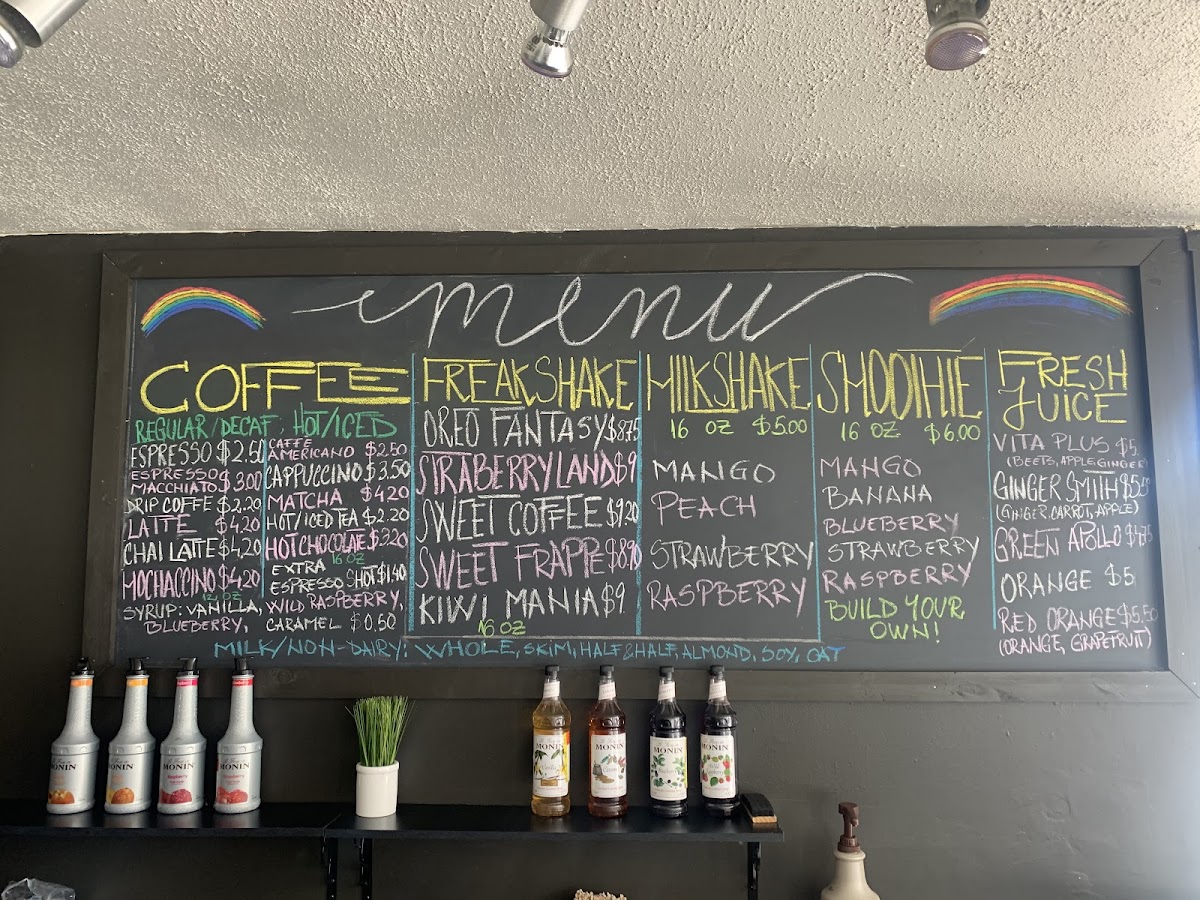 menu
COFFEE
REGULAR/DECAF, HOT/ICED
ESPRESSO $2.50
ESPRESSO
MACCHIATO $3.00
DRIP COFFE $2.20
LATTE $4,20
CHAI LATTE $4,20
MOCHACCINO $4,20
12 OZ
CAFFE
AMERICANO $2.50
CAPPUCCINO $3.50
MATCHA $4.20
HOT/ICED TEA $2.20
HOT CHOCOLATE $3.20
16 OZ
EXTRA
ESPRESSO SHOT $1.40
SYRUP: VANILLA, WILD RASPBERRY,
BLUEBERRY, CARAMEL $0.50
FREAKSHAKE
OREO FANTASY $8.75
STRABERRYLAND $9
SWEET COFFEE $9.20
SWEET FRAPPE $8.90
KIWI MANIA $9
16 OZ
MILKSHAKE
16 OZ $5.00
MANGO
PEACH
STRAWBERRY
RASPBERRY
SMOOTHIE
16 OZ $6.00
MANGO
BANANA
BLUEBERRY
STRAWBERRY
RASPBERRY
BUILD YOUR
OWN!
FRESH
JUICE
VITA PLUS $5
(BEETS, APPLE, GINGER)
GINGER SMITH
(GINGER, CARROT, APPLE)
GREEN APOLLO $4.75
ORANGE $5
RED ORANGE $5.50
(ORANGE, GRAPEFRUIT)
MILK/NON-DAIRY: WHOLE, SKIM, HALF&HALF, ALMOND, SOY, OAT
MONIN
MONIN
MONIN
Raspberry
MONIN
MONIN
MONIN
MONIN
MONIN